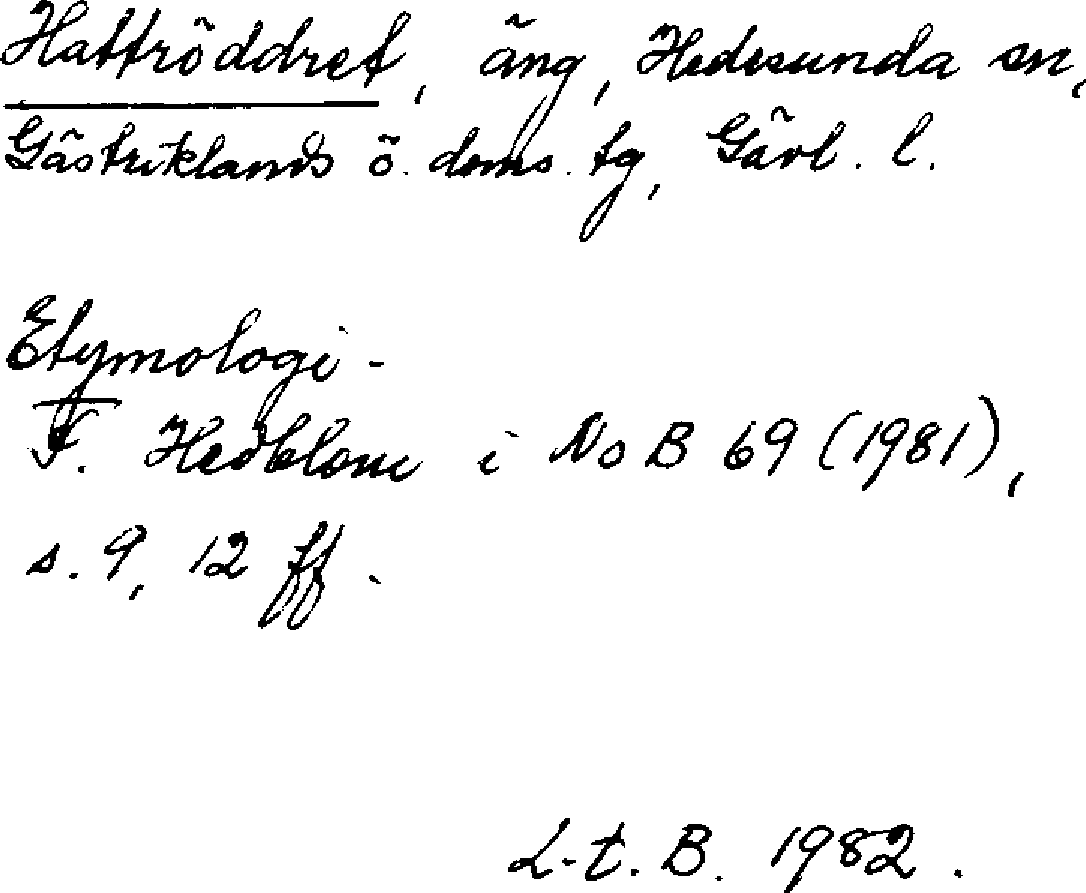 Hattröddret, äng, Hedesunda sn,
Gästriklands ö. doms. tg, Gävl. l.
Etymologi -
F. Hedblom i NoB 69 (1981),
s. 9, 12 ff.
L-t. B. 1982.